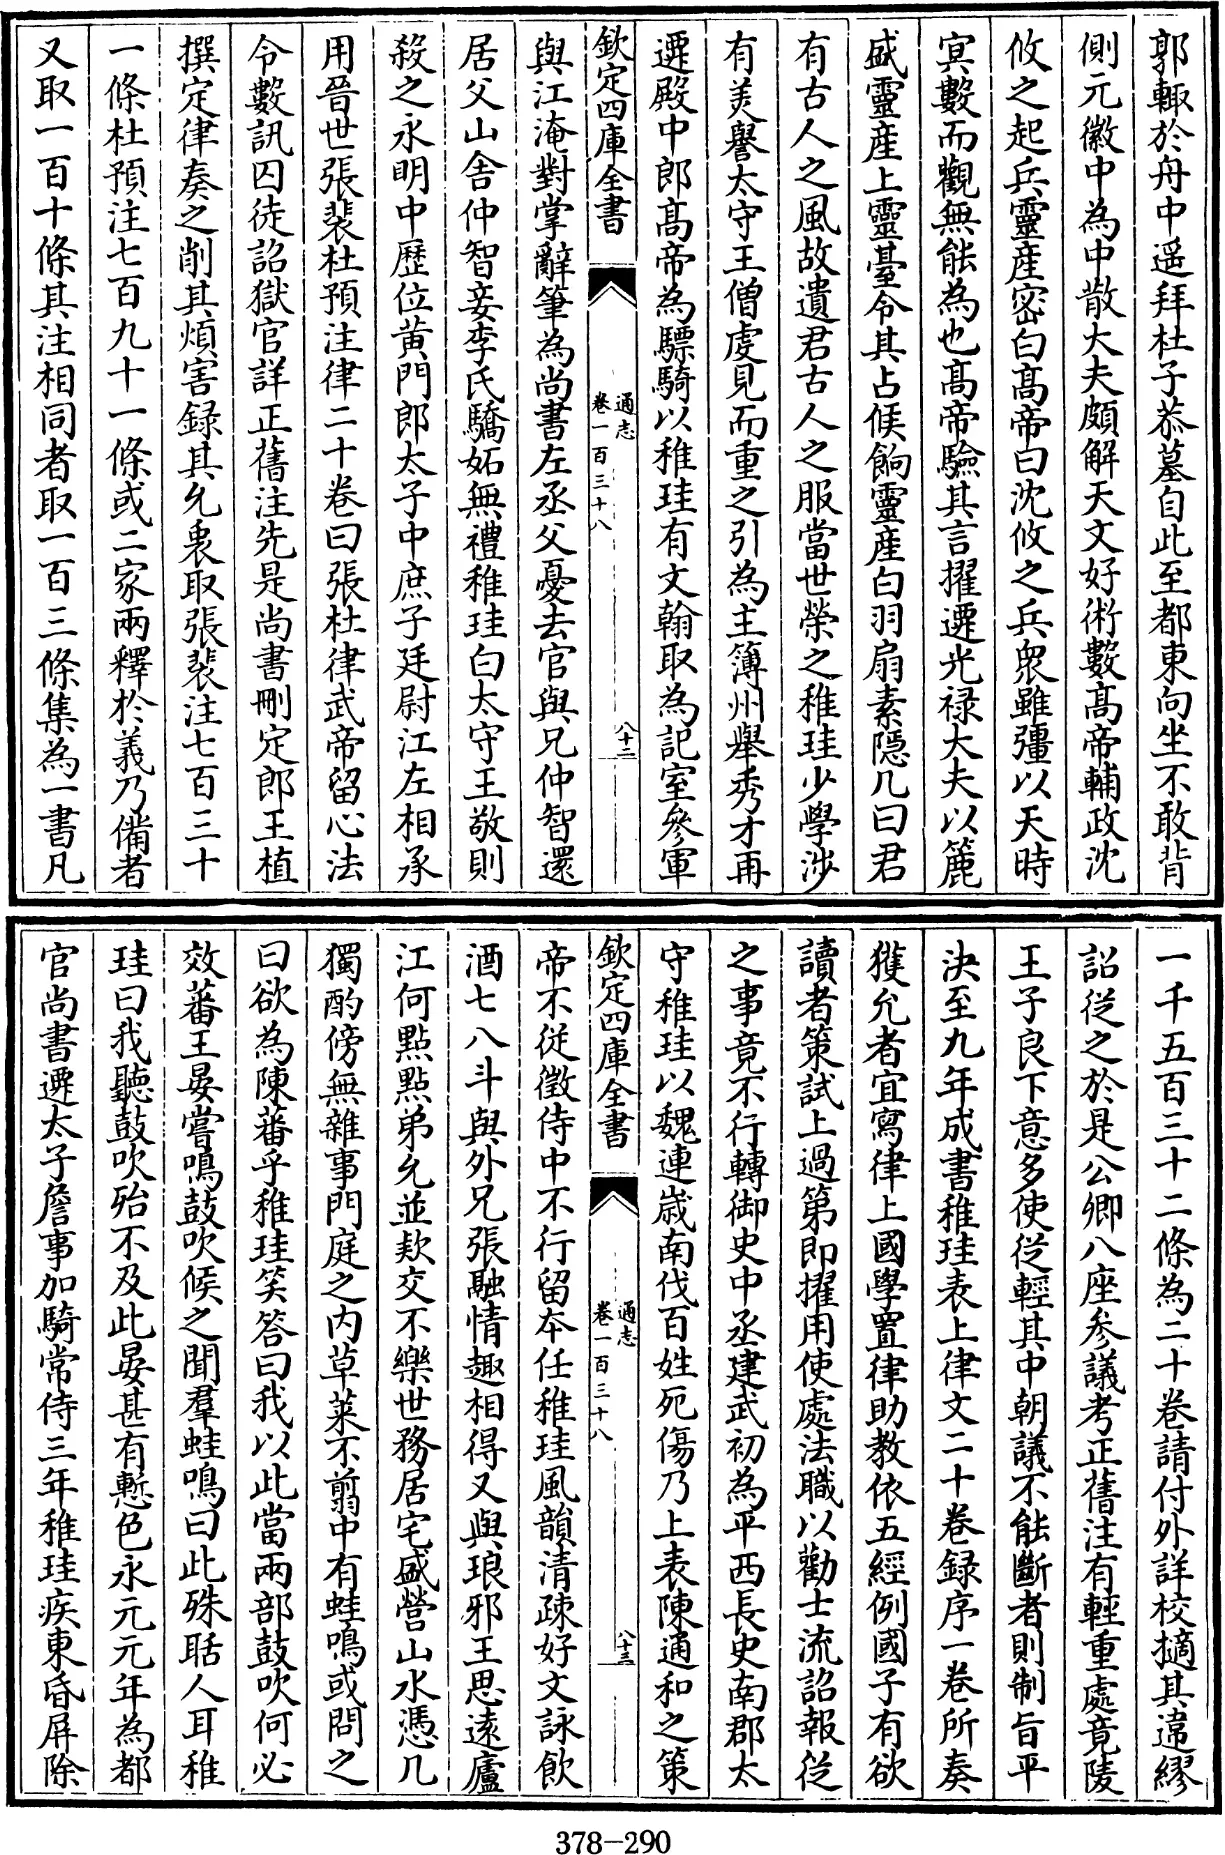 郭輙於舟中遥拜杜子恭墓自此至都東向坐不敢背
側元徽中為中散大夫頗解天文好術數髙帝輔政沈
攸之起兵靈産密白髙帝曰沈攸之兵衆雖彊以天時
冥數而觀無能為也髙帝驗其言擢遷光禄大夫以簏
盛靈産上靈臺令其占候餉靈産白羽扇素隱几曰君
有古人之風故遺君古人之服當世榮之稚珪少學涉
有美譽太守王僧虔見而重之引為主簿州舉秀才再
遷殿中郎髙帝為驃騎以稚珪有文翰取為記室參軍
欽定四庫全書
通志
卷一百三十八
八十二
與江淹對掌辭筆為尚書左丞父憂去官與兄仲智還
居父山舎仲智妾李氏驕妬無禮稚珪白太守王敬則
殺之永明中歴位黄門郎太子中庶子廷尉江左相承
用晉世張裴杜預注律二十卷曰張杜律武帝留心法
令數訊囚徒詔獄官詳正舊注先是尚書刪定郎王植
撰定律奏之削其煩害録其允衷取張裴注七百三十
一條杜預注七百九十一條或二家兩釋於義乃備者
又取一百十條其注相同者取一百三條集為一書凡
一千五百三十二條為二十卷請付外詳校擿其違繆
詔從之於是公卿八座參議考正舊注有輕重處竟陵
王子良下意多使從輕其中朝議不能斷者則制旨平
決至九年成書稚珪表上律文二十卷録序一卷所奏
獲允者宜寫律上國學置律助教依五經例國子有欲
讀者策試上過第即擢用使處法職以勸士流詔報從
之事竟不行轉御史中丞建武初為平西長史南郡太
守稚珪以魏連歳南伐百姓死傷乃上表陳通和之策
欽定四庫全書
通志
卷一百三十八
八十三
帝不從徵侍中不行留本任稚珪風韻清疎好文詠飲
酒七八斗與外兄張融情趣相得又與琅邪王思遠廬
江何點點弟允並欵交不樂世務居宅盛營山水憑几
獨酌傍無雜事門庭之内草萊不翦中有蛙鳴或問之
曰欲為陳蕃乎稚珪笑答曰我以此當兩部鼓吹何必
效蕃王晏嘗鳴鼓吹候之聞羣蛙鳴曰此殊聒人耳稚
珪曰我聽鼓吹殆不及此晏甚有慙色永元元年為都
官尚書遷太子詹事加騎常侍三年稚珪疾東昏屏除
378-290